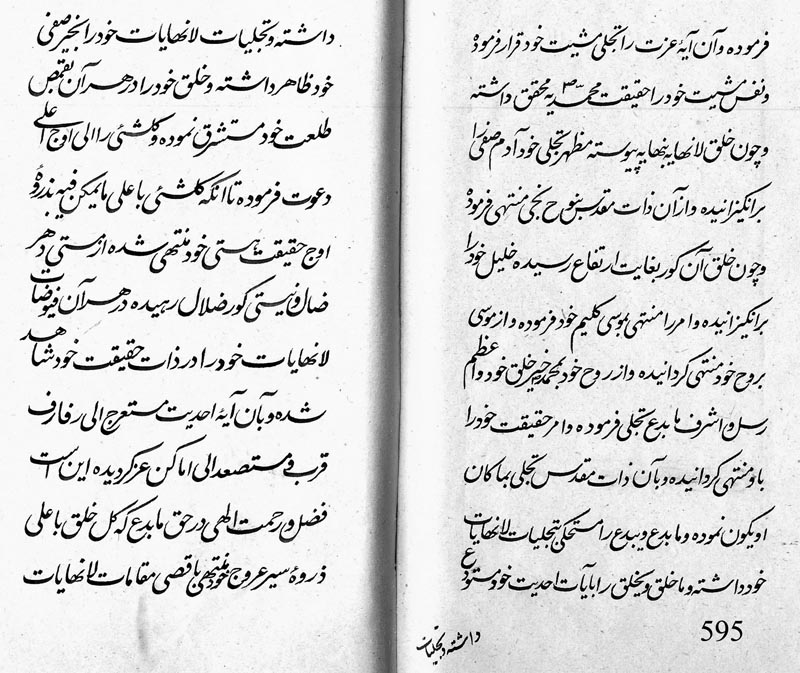 فرموده وآن آیهٔ عزت را تجلی مشیت خود قرار فرموده
ونفس مشیت خود را حقیقت محمدیه ص محقق داشته
وچون خلق لانهایه بنهایه پیوسته مظهر تجلی خود آدم صفی را
برانگیزانیده واز آن ذات مقدس بنوح نجی منتهی فرموده
وچون خلق آن کور بغایت ارتفاع رسیده خلیل خود را
برانگیزانیده وامر را منتهی بموسی کلیم خود فرموده واز موسی
بروح خود منتهی گردانیده واز روح خود بمحمد خیر خلق خود واعظم
رسل واشرف مابدع تجلی فرموده وامر حقیقت خود را
باو منتهی گردانیده وبآن ذات مقدس تجلی بماکان
اویکون نموده ومابدع ویبدع را مستحکی بتجلیات لانهایات
خود داشته وماخلق ویخلق را بآیات احدیت خود مستودع
595
داشته وتجلیات
داشته وتجلیات لانهایات خود را بخیر صفی
خود ظاهر داشته وخلق خود را در هر آن بقمص
طلعت خود مستشرق نموده وکلشئ را الی اوج اعلی
دعوت فرموده تا آنکه کلشئ باعلی مایمکن فیه بذروهٔ
اوج حقیقت هستی خود منتهی شده از مستی دهر
ضال ونیستی کور ضلال رهیده در هر آن فیوضات
لانهایات خود را در ذات حقیقت خود شاهد
شده وبآن آیهٔ احدیت مستعرج الی رفارف
قرب ومستصعد الی اماکن عز گردیده این است
فضل ورحمت الهی در حق مابدع که کل خلق باعلی
ذروهٔ سیر عروج خود منتهی باقصی مقامات لانهایات